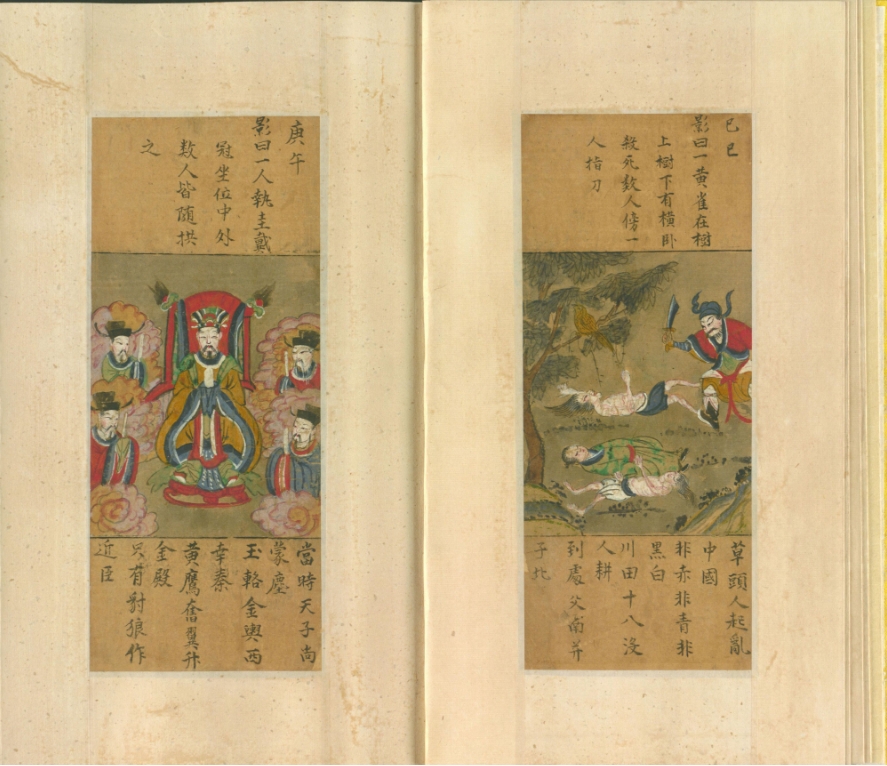 己巳
影曰一黄雀在樹
上樹下有横卧
殺死数人傍一
人指刀
草頭人起亂
中國
非赤非青非
黑白
川田十八没
人耕
到處父南并
子北
庚午
影曰一人執圭戴
冠坐位中外
数人皆随拱
之
當時天子尚
蒙塵
玉輅金輿西
幸秦
黄鷹奮翼升
金殿
只有豺狼作
近臣